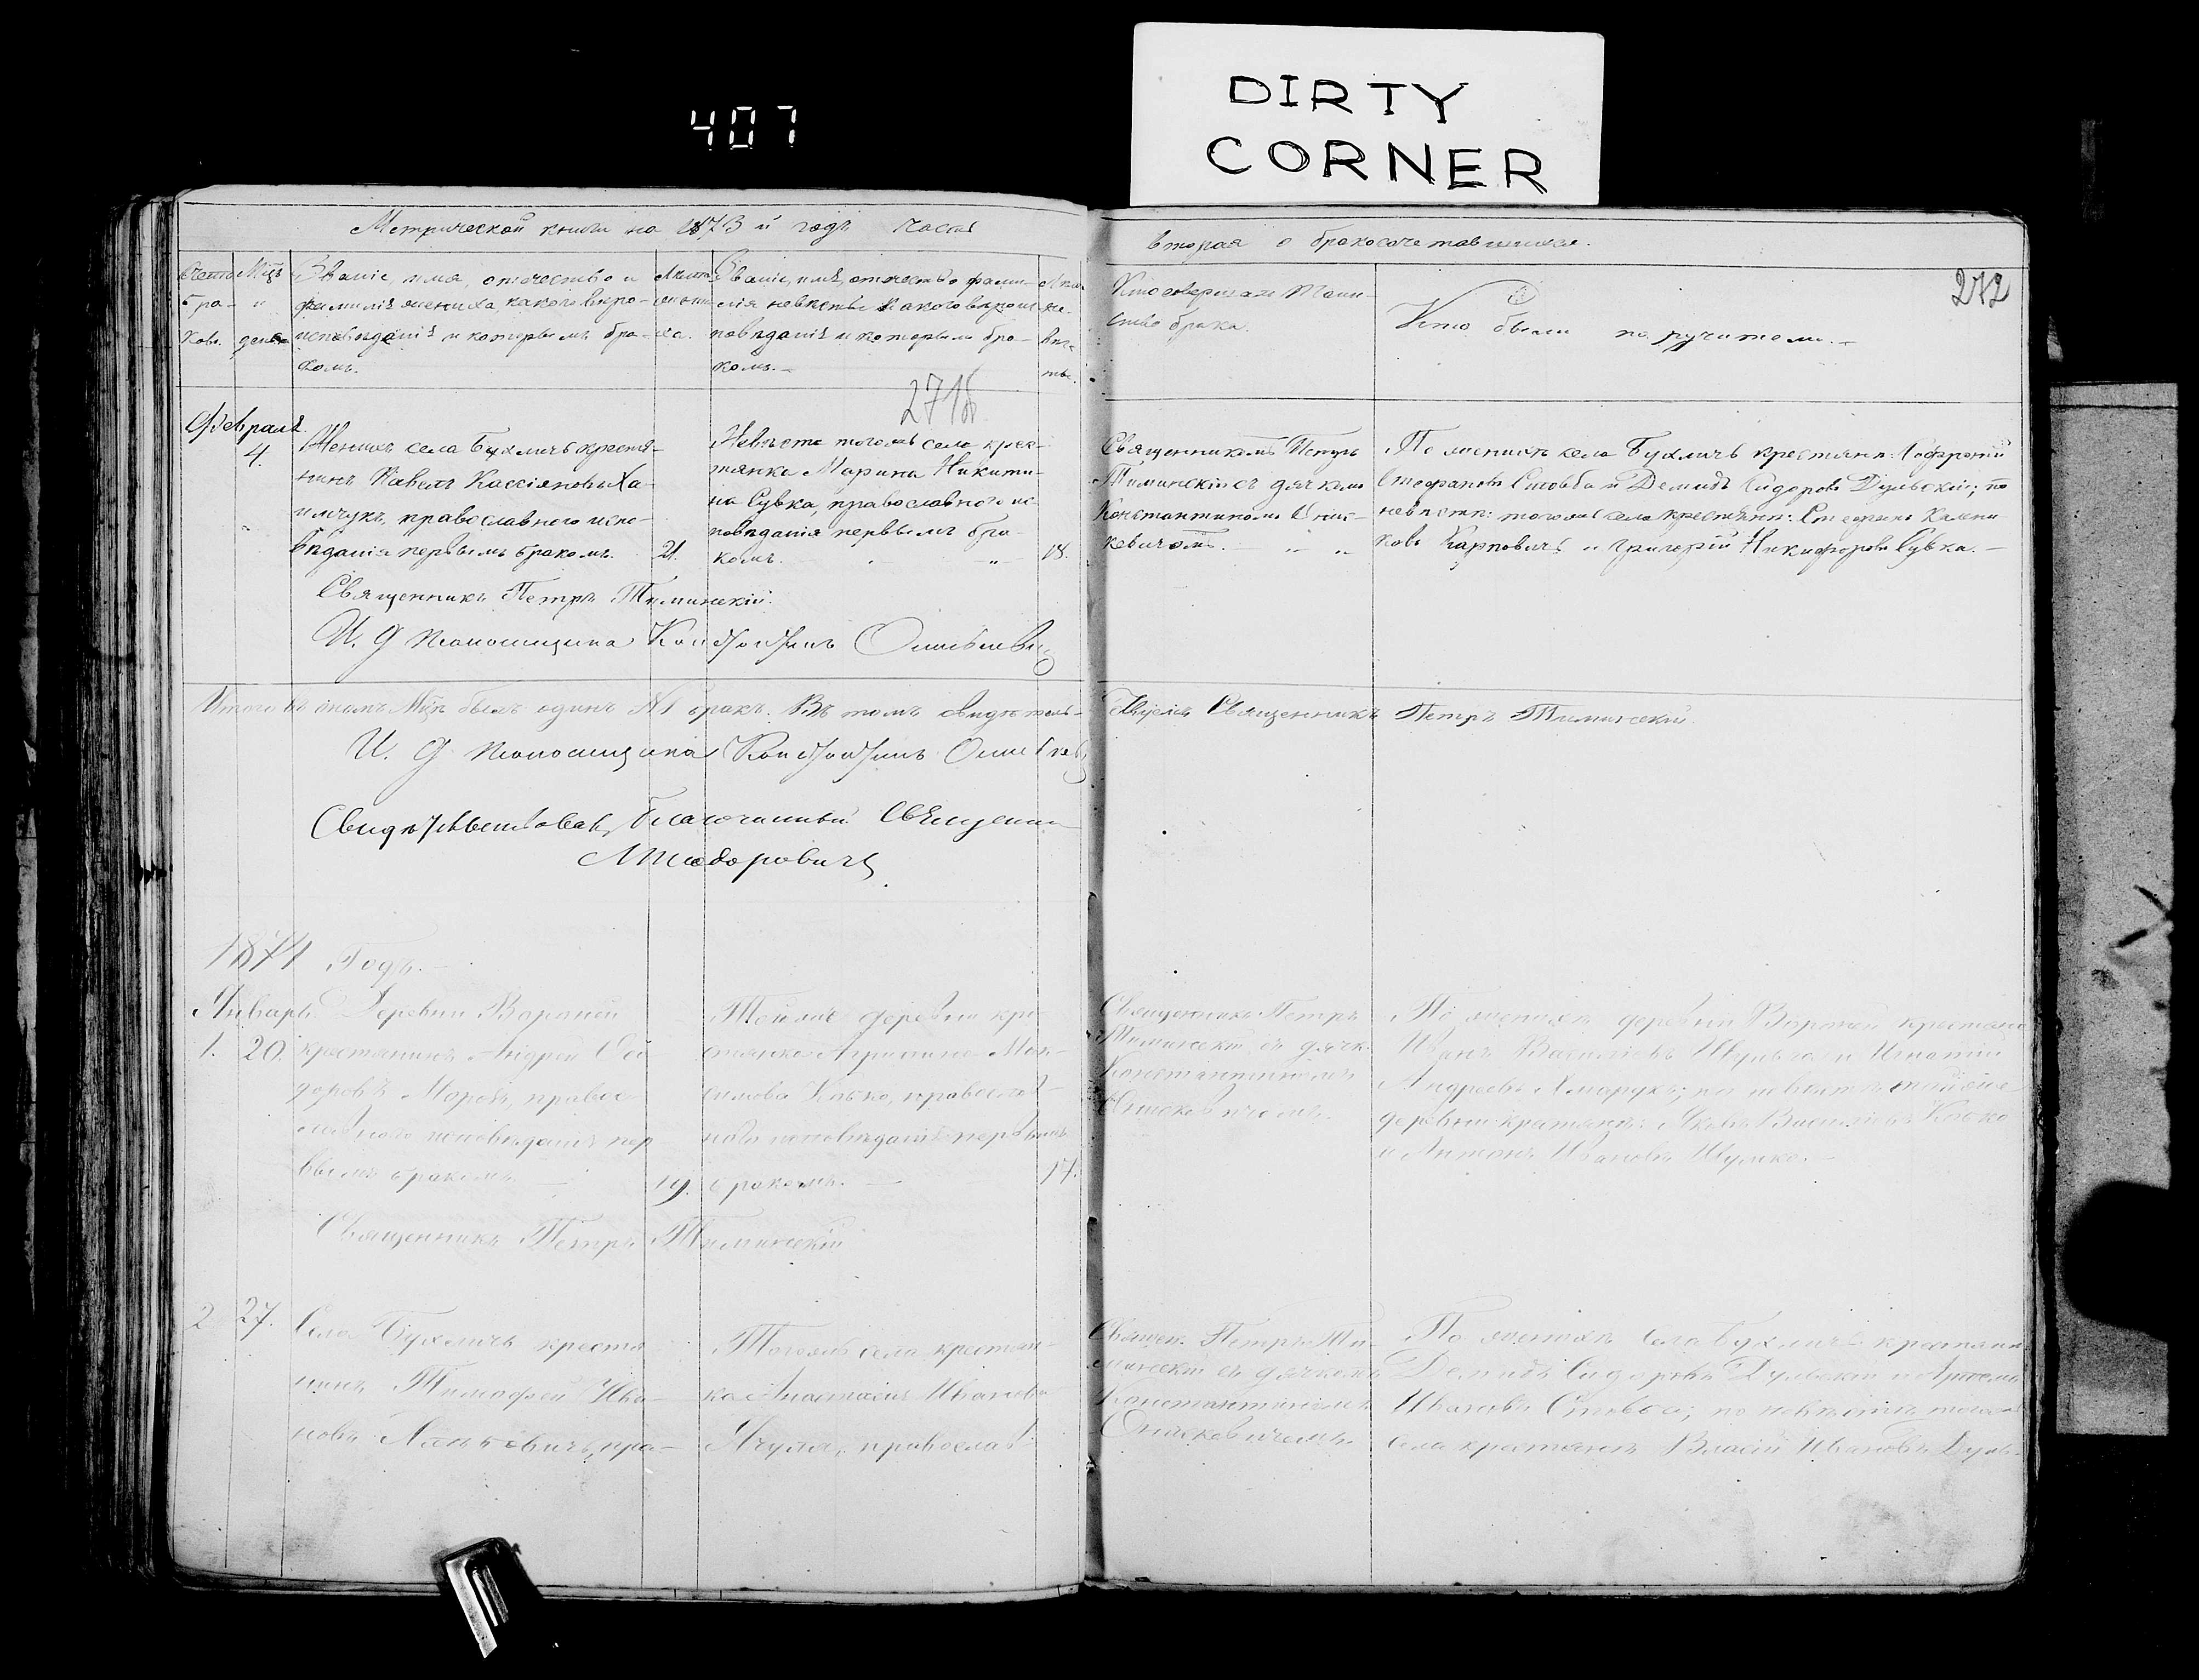 407
DIRTY
CORNER
Метрической книги на 1873 й годъ часть
вторая о бракосочетавшихся.
272
Счетъ бра-ковъ.
Мцъ и день
Званіе, имя, отечество и
фамилія жениха, какого вѣро-
исповѣданія и которымъ бра-
комъ.
Лѣта жени-ха.
Званіе, имя, отечество фами-
лія невѣсты какого вѣроис-
повѣданія и которымъ бра-
комъ.
Лѣта не-вѣс-ты.
Кто совершалъ Таин-
ство брака.
Кто были поручители.
271б
Февраля
4.
Женихъ села Бухличъ крестья-
нинъ Павелъ Кассіяновъ Ха-
имчукъ, православного испо-
вѣданія первымъ бракомъ.
21.
Невѣста тогожъ села крес-
тянка Марина Никити-
на Сувка, православного ис-
повѣданія первымъ бра-
комъ.
18.
Священникомъ Петръ
Тиминскій съ дячкомъ
Константиномъ Онис-
кевичомъ.
По женихѣ села Бухличъ крестяне: Софроній
Стефановъ Столба и Демидъ Сидоровъ Дульскій; по
невѣстѣ: тогожъ села крестяне: Стефанъ Калени-
ковъ Карповичъ и Григорій Никифоровъ Сувка.
Священникъ Петръ Тиминскій.
И. Д. Псаломщика Константинъ Онискевич
Итого въ ономъ Мцѣ былъ одинъ №1 бракъ. Въ томъ свидѣтель-
ствуемъ Священникъ Петръ Тиминскій.
И. Д. Псаломщика Константинъ Онискевич
Свидѣтельствовалъ Благочинный Священник
Теодоровичъ
1874 Годъ.
Январь
1. 20.
Деревни Вороней
крестянинъ Андрей Сѣ
доровъ Морозъ, правос
лавного исповѣданія пер
ввымъ бракомъ.
19.
Тойже деревни кре
стянка Агрипина Мак-
симова Косько, православ-
ного исповѣданія первымъ
бракомъ.
17.
Священникъ Петръ
Тиминскій съ дячк.
Константиномъ
Онискевичемъ.
По женихѣ деревни Вороней крестяне
Иванъ Василіевъ и Игнатій
Андреевъ; по невѣстѣ тойже
деревни крестяне: Яковъ Василіевъ Косько
и Антонъ Ивановъ Шумко.
Священникъ Петръ Тиминскій
2 27.
Села Бухличъ крестя
нинъ Тимофей Ива-
новъ, пра-
Тогожъ села крестян-
ка Анастасія Иванова
Ячуля, православ-
Священ. Петръ Ти-
минскій съ дячкомъ
Константиномъ
Онискевичемъ.
По женихѣ села Бухличъ крестяни
Демидъ Сидоровъ Дульскій и Артемъ
Ивановъ Столба; по невѣстѣ тогожъ
села крестянинъ Власій Ивановъ Дуль-